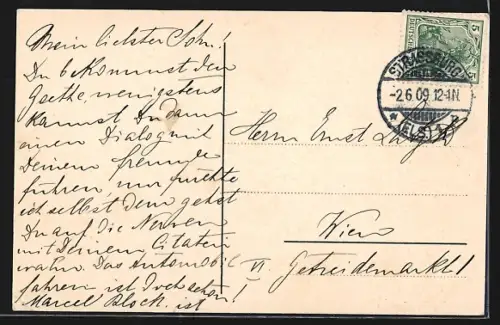 Mein liebster Sohn!
Du bekommst den
Goethe, wenigstens
kannst Du dann
einen Dialog mit
Deinem Freunde
führen, nur fürchte
ich selbst dem gehst
Du auf die Nerven
mit Deinen Citaten
Das Automobil
fahren ist doch schön!
Marcel Block. ist
5
STRASSBURG
-2.6.09.12-1N.
* (ELS.) 1 *
Herrn Ernst
Wien
VI. Getreidemarkt 1